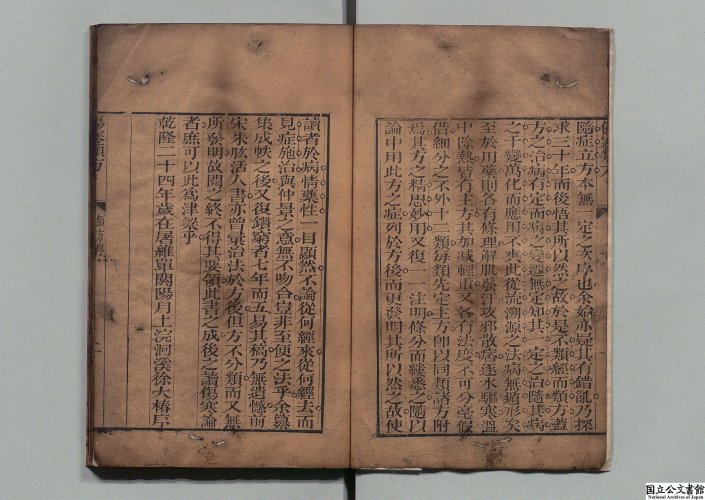 隨症立方本無一定之次序也余始亦疑其有錯亂乃探
求三十年而後悟其所以然之故於是不類經而類方蓋
方之治病有定而病之變遷無定知其一定之治隨其病
之千變萬化而應用不爽此從流溯源之法病無遁形矣
至於用藥則各有條理解肌發汗攻邪散痞逐水驅寒溫
中除熱皆有主方其加減輕重又各有法度不可分毫假
借細分之不外十二類每類先定主方卽以同類諸方附
焉其方之精思妙用又復一一注明條分而縷悉之隨以
論中用此方之症列於方後而更發明其所以然之故使
讀者於病情藥性一目顯然不論從何經來從何經去而
見症施治與仲景之意無不吻合豈非至便之法乎余纂
集成帙之後又復鑽窮者七年而五易其稿乃無遺憾前
宋朱肱活人書亦曾彙治法於方後但方不分類而又無
所發明故閱之終不得其要領此書之成後之讀傷寒論
者庶可以此爲津梁乎
乾隆二十四年歲在屠維單閼陽月上浣洄溪徐大椿序
国立公文書館
National Archives of Japan